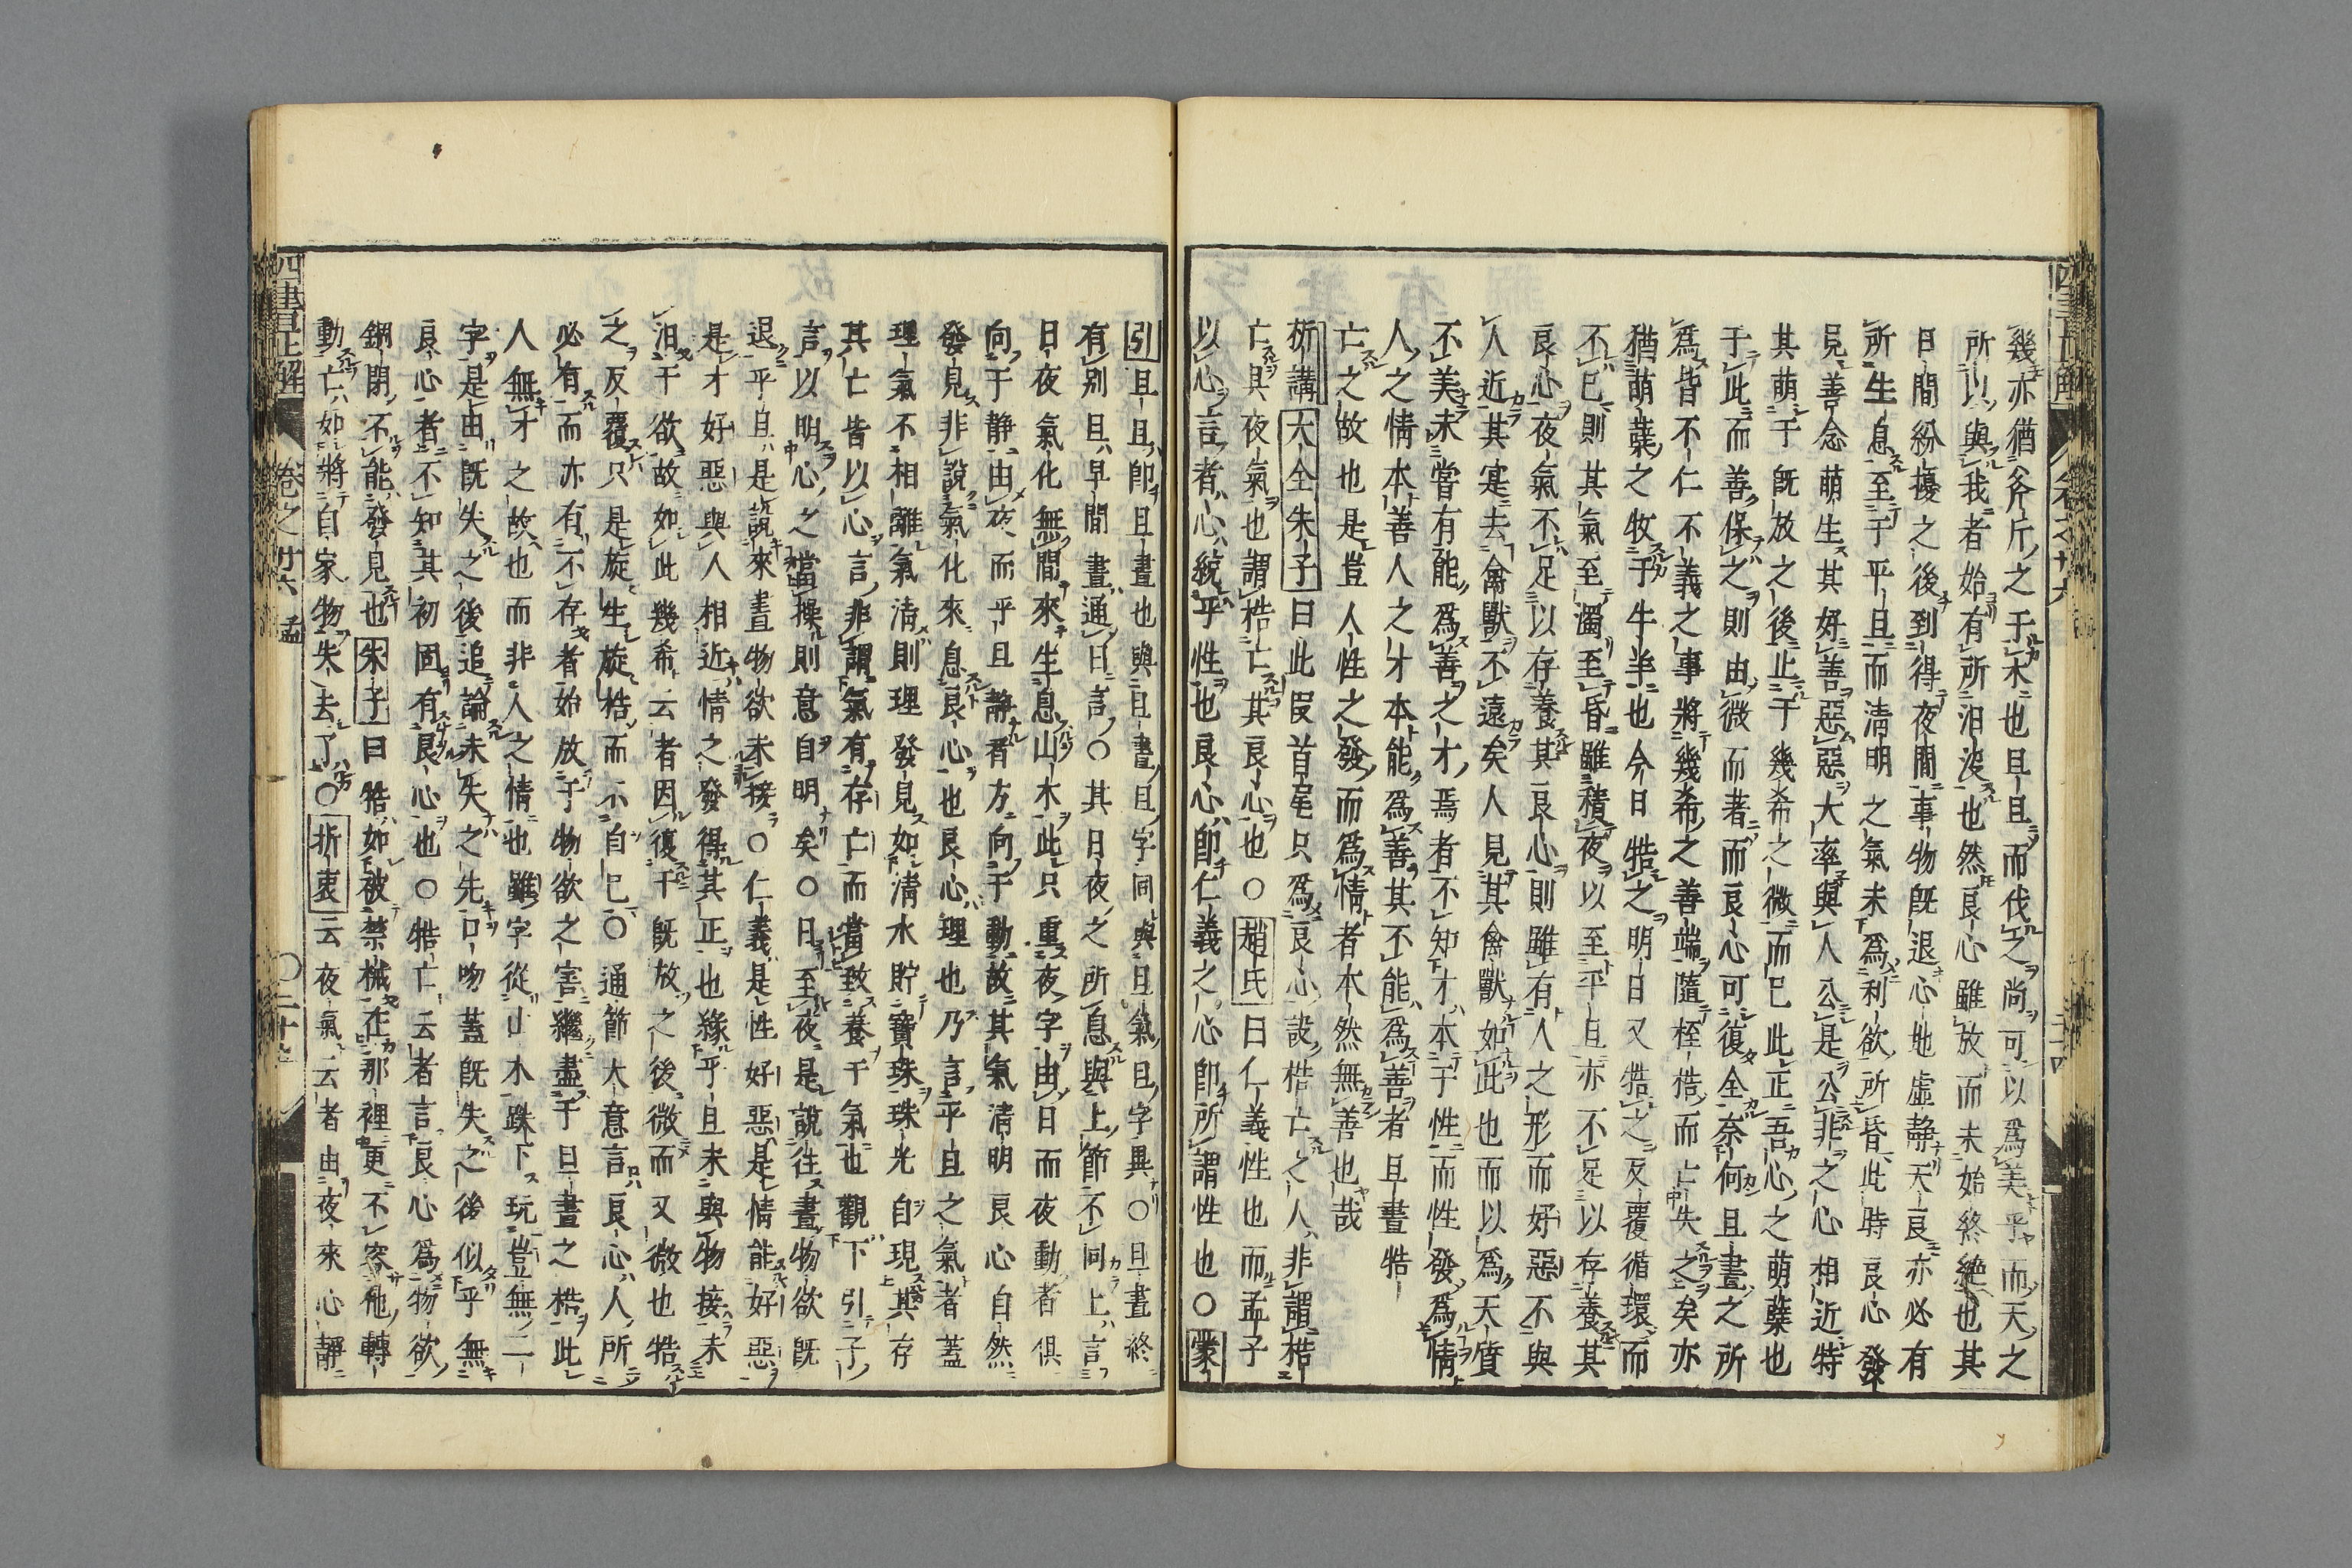 幾亦猶斧斤之于木也旦旦而伐之尚可以爲美乎而天之
所以與我者始有所汨沒也然良心雖放而未始終絶也其
日間紛擾之後到得夜間事物既退心地虛靜天良亦必有
所生息至于平旦而清明之氣未爲利欲所昏此時良心發
見善念萌生其好善惡惡大率與人公是公非之心相近特
其萌于既放之後止于幾希之微而已此正吾心之萌蘖也
于此而善保之則由微而著而良心可復全奈何旦晝之所
爲皆不仁不義之事將幾希之善端隨梏而亡失之矣亦
猶萌蘖之牧于牛羊也今日牿之明日又牿之反覆循環而
不已則其氣至濁至昏雖積夜以至平旦亦不足以存養其
良心夜氣不足以存養其良心則雖有人之形而好惡不與
人近其寔去禽獸不遠矣人見其禽獸如此也而以爲天質
不美未嘗有能爲善之才焉者不知才本于性而性發爲情
人之情本善人之才本能爲善其不能爲善者旦晝牿
亡之故也是豈人性之發而爲情者本然無善也哉
析講大全朱子曰此段首尾只爲良心設梏亡之人非謂梏
亡其夜氣也謂梏亡其良心也○趙氏曰仁義性也而孟子
以心言者心統乎性也良心卽仁義之心卽所謂性也○蒙
引旦旦卽旦晝也與旦晝旦字同與旦氣旦字異○旦晝終
有別旦早間晝通日言○其日夜之所息與上節不同上言
日夜氣化無間來生息山木此只重夜字由日而夜動者俱
向于靜由夜而平旦靜者方向于動故其氣清明良心自然
發見非說氣化來息良心也良心理也乃言平旦之氣者蓋
理氣不相離氣清則理發見如清水貯寶珠珠光自現其存
其亡皆以心言非謂氣有存亡而當致養于氣也觀下引子
言以明心之當操則意自明矣○日至夜是說往晝物欲既
退平旦是說來晝物欲未接○仁義是性好惡是情能好惡
是才好惡與人相近情之發得其正也緣乎旦未與物接未
汨于欲故如此幾希云者因復于既放之後微而又微也牿
之反覆只是旋生旋梏而不自已○通節大意言良心人所
必有而亦有不存者始放于物欲之害繼盡于旦晝之梏此
人無才之故也而非人之情也雖字從山木跌下玩豈無二
字是由既失之後追論未失之先口吻蓋既失之後似乎無
良心者不知其初固有良心也○牿亡云者言良心爲物欲
錮閉不能發見也朱子曰牿如被禁械在那裡更不容他轉
動亡如將自家物失去了○折衷云夜氣云者由夜來心靜
四書正解
卷之廿六 孟